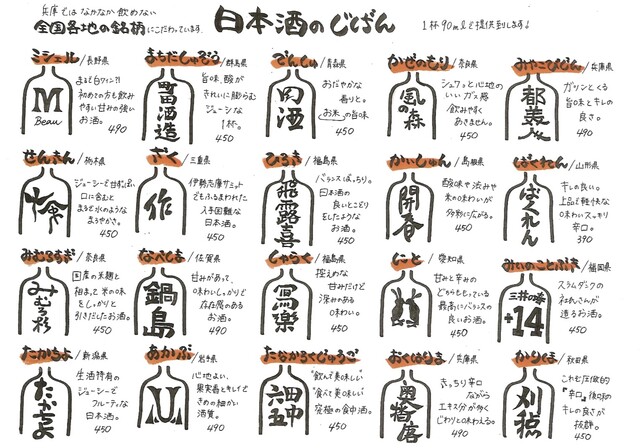 兵庫ではなかなか飲めない
全国各地の銘柄にこだわっています。
日本酒のじばん
1杯90mlで提供致します!
ミシェル/長野県
M
Beau
まるで白ワイン?!
初めての方も飲み
やすい甘みの強い
お酒。
490
まちだしゅぞう/群馬県
町田酒造
旨味、酸が
きれいに膨らむ
ジューシな
1杯。
450
でんしゅ/青森県
田酒
おだやかな
香りと。
お米の旨味
450
かぜのもり/奈良県
風の森
シュワッと心地の
いいガス感
飲みやすく
あきません。
450
みやこびじん/兵庫県
都美人
ガツンとくる
旨味とキレの
良さ。
490
せんきん/栃木県
仙禽
ジューシーで甘ずっぱい
口に含むと
まるで水のような
まろやかさ。
450
ざく/三重県
作
伊勢志摩サミット
でもふるまわれた
入手困難な
日本酒。
450
ひろき/福島県
飛露喜
バランスばっちり。
日本酒の
良いとこどり
をしたような
お酒。
450
かいしゅん/島根県
開春
酸味や渋みや
米の味わいが
多彩に広がる。
450
ばくれん/山形県
ばくれん
キレの良い。
上品で軽快な
味わいスッキリ
辛口。
390
みむろすぎ/奈良県
みむろ杉
国産の米麹と
相まって米の味
をしっかりと
引きだしたお酒。
450
なべしま/佐賀県
鍋島
甘みがあって、
味わいしっかりで
存在感のある
お酒。
490
しゃらく/福島県
寫樂
控えめな
甘みだけど
深みのある
味わい。
450
にと/愛知県
甘みと辛みの
どちらももっている
最高にバランスの
良いお酒。
450
みいのことぶき/福岡県
三井の寿
+14
スラムダンクの
社氏さんが
造るお酒。
450
たかちよ/新潟県
たかちよ
生酒特有の
ジューシーで
フルーティな
日本酒。
450
あかぶ/岩手県
心地よい、
果実香とキレイで
きめの細かい
酒質。
490
たなかろくじゅうご/福岡県
田中六五
"飲んで美味しい
食べて美味しく"
究極の食中酒。
450
おくはりま/兵庫県
奥播磨
きっちり辛口
ながら
エキス分が多く
じわりと味わえる。
490
かりほ/秋田県
刈穂
これぞ圧倒的
"辛口"。後味の
キレの良さが
抜群。
450